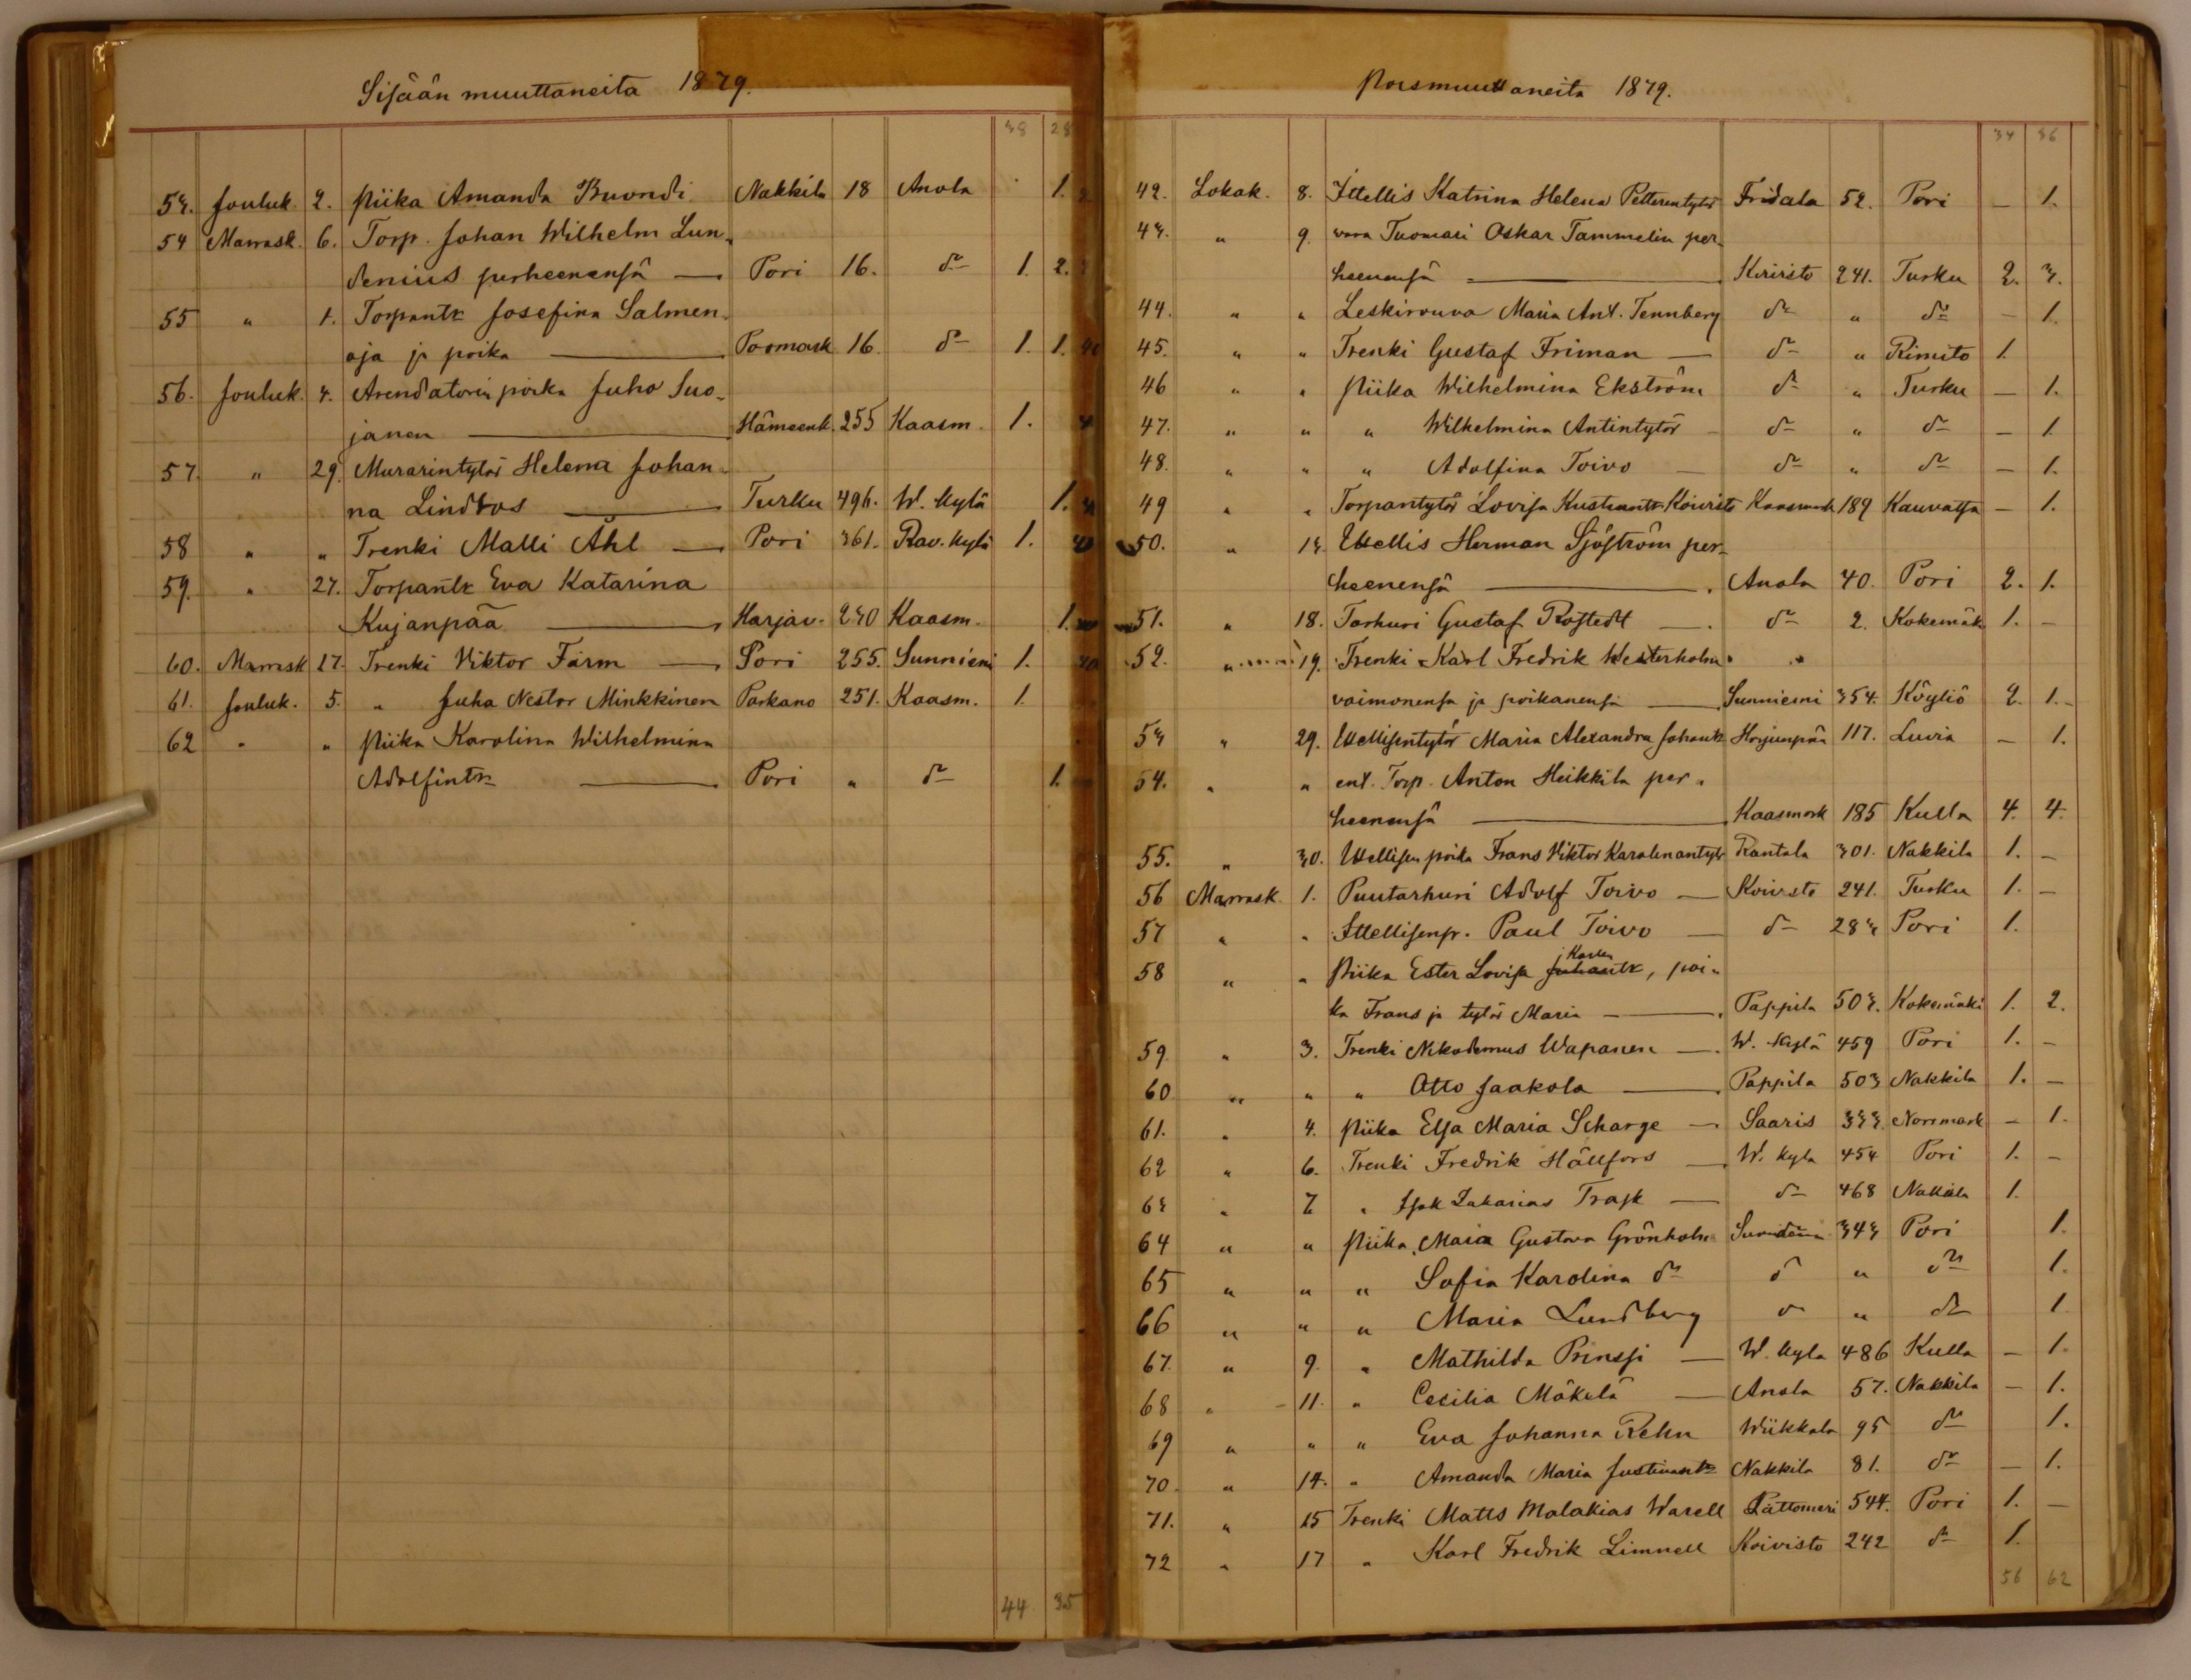 Sisään muuttaneita 1879.
38 28
53. Jouluk. 2. Piika Amanda Buondi Nakkila 18 Anola 1.
54 Marrask. 6. Torp. Johan Wilhelm Lun-
denius perheenensä — Pori 16. do 1. 2.
55 " 1. Torpantr Josefina Salmen-
oja ja poika — Poomark 16. do 1. 1.
56. Jouluk. 3. Arendatorin poika Juho Suo-
janen — Hämeenk. 255 Kaasm. 1.
57. " 29. Murarintytär Helena Johan-
na Lindros — Turku 496. W. kylä 1.
58 " " Trenki Malli Åhl — Pori 361. Rav. kylä 1.
59. " 27. Torpantr Eva Katarina
Kujanpää — Harjav. 230 Kaasm. 1.
60. Marrask 27. Trenki Viktor Färm — Pori 255. Sunniemi 1.
61. Jouluk. 5. " Juha Nestor Minkkinen Parkano 251. Kaasm. 1.
62 " " Piika Karolina Wilhelmina
Adolfintr — Pori " do 1.
44 35
Poismuuttaneita 1879.
34 36
42. Lokak. 8. Ittellis Katrina Helena Petterintytär Fridala 52. Pori — 1.
43. " 9. vara Tuomari Oskar Tammelin per-
heenensä — Koivisto 241. Turku 2. 3.
44. " " Leskirouva Maria Ant. Tennberg do " do — 1.
45. " " Trenki Gustaf Friman — do " Rimito 1.
46 " " Piika Wilhelmina Ekström do " Turku — 1.
47. " " " Wilhelmina Antintytär — do " do — 1.
48. " " " Adolfina Toivo — do " do — 1.
49 " " Torpantytär Lovisa Kustaantr Koivisto Kaasmark 189 Kauvatsa — 1.
50. " 13. Ittellis Herman Sjöström per-
heenensä — Anola 40. Pori 2. 1.
51. " 18. Torhuri Gustaf Rostedt — do 2. Kokemäk 1. —
52. " 19. Trenki Karl Fredrik Westerholm
vaimonensa ja poikanensa — Sunniemi 354. Köyliö 2. 1.
53 " 29. Ittellisentytär Maria Alexandra Johantr Harjunpää 117. Luvia — 1.
54. " " ent. Torp. Anton Heikkila per-
heenensä — Kaasmark 185 Kulla 4. 4.
55. " 30. Ittellisen poika Frans Viktor Karolinantytr Rantala 301. Nakkila 1. —
56 Marrask. 1. Puutarhuri Adolf Toivo — Koivisto 241. Turku 1. —
57 " " Ittellisenp. Paul Toivo — do 283 Pori 1.
58 " " Piika Ester Lovisa Juhantr, poi-
ka Frans ja tytär Maria — Pappila 503. Kokemäki 1. 2.
59. " 3. Trenki Nikodemus Wapanen — W. kylä 459 Pori 1. —
60 " " " Otto Jaakola — Pappila 503 Nakkila 1. —
61. " 4. Piika Elsa Maria Scharge — Saaris 333. Norrmark — 1.
62 " 6. Trenki Fredrik Hällfors — W. kyla 454 Pori 1. —
63 " 7 " Isak Zakarias Trask — do 468 Nakkila 1.
64 " " Piika Maria Gustava Grönholm 343 Pori 1.
65 " " " Sofia Karolina do do " do 1.
66 " " " Maria Lundberg do " do 1
67. " 9. " Mathilda Prinssi — W. kyla 486 Kulla — 1.
68 " 11. " Cecilia Mäkelä — Anola 57. Nakkila — 1.
69 " " " Eva Johanna Rehn Wiikkala 95 do 1.
70. " 14. " Amanda Maria Justinantr Nakkila 81. do — 1.
71. " 15 Trenki Matts Malakias Warell Lattomeri 544. Pori 1. —
72 " 17 " Karl Fredrik Limnell Koivisto 242 do 1.
56 62